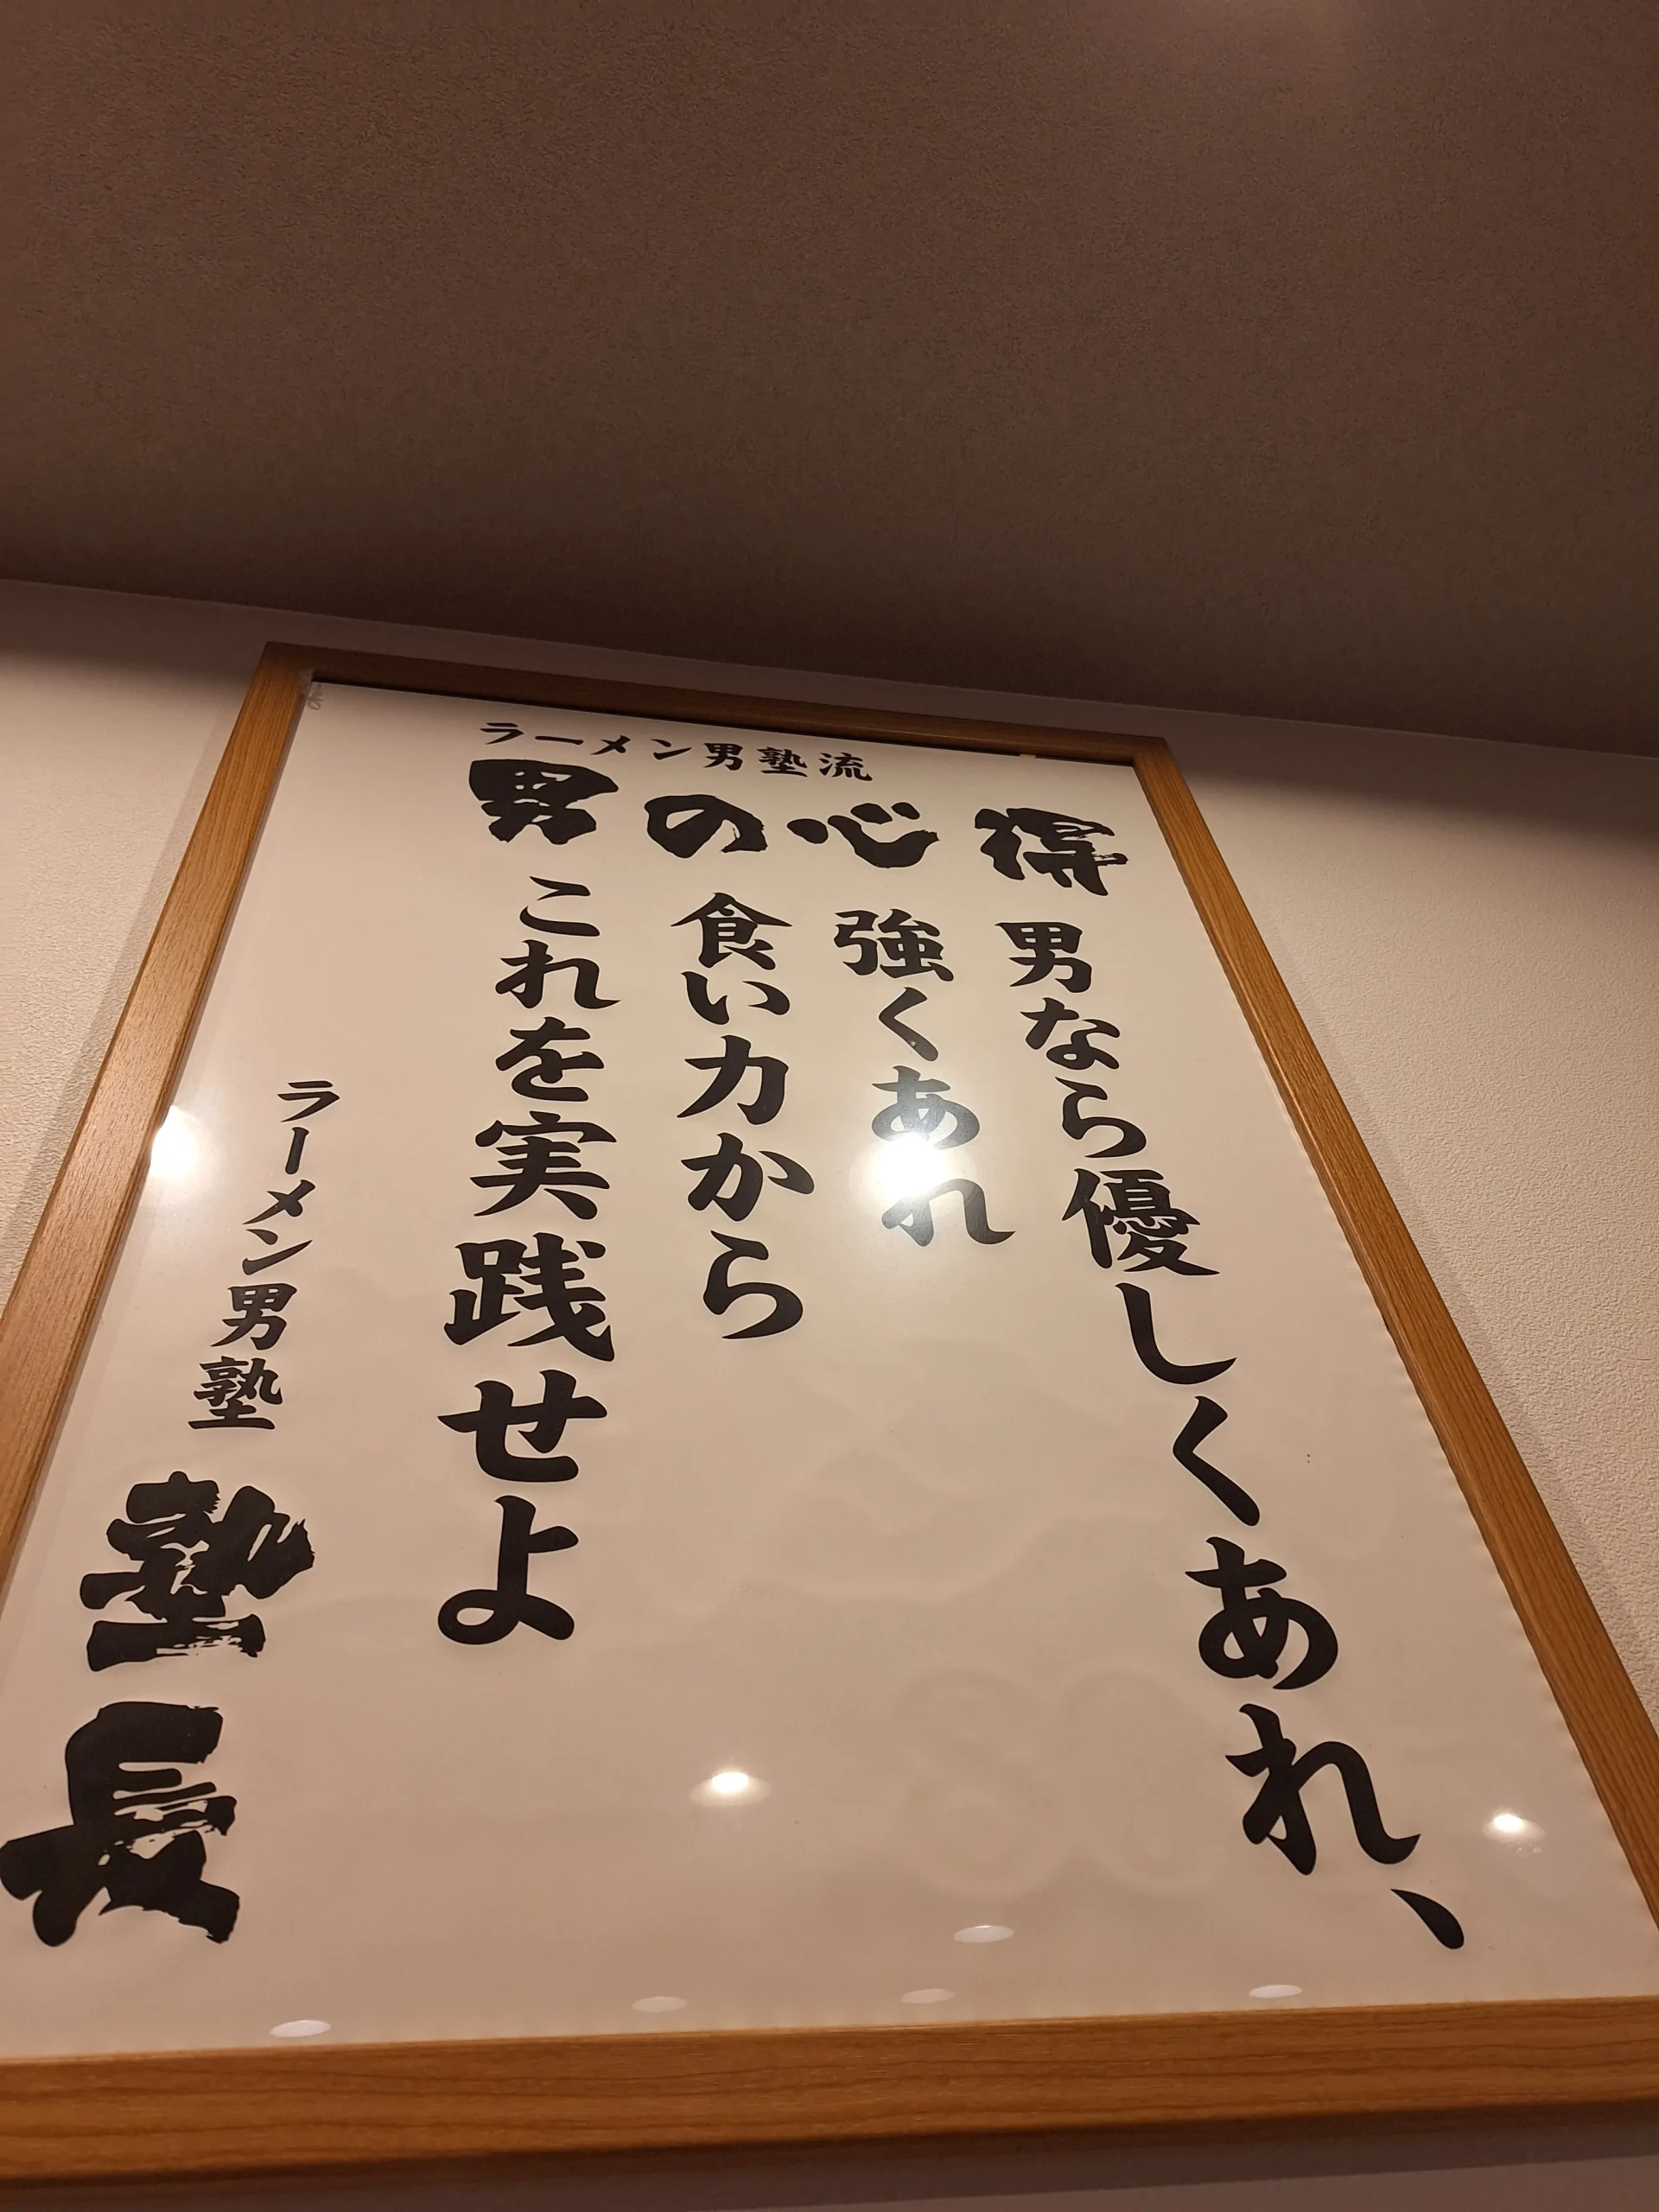 ラーメン男塾流
男の心得
男なら優しくあれ、
強くあれ
食い力から
これを実践せよ
ラーメン男塾
塾長